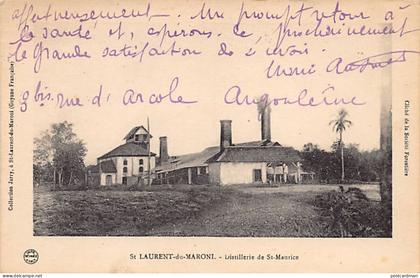 affectueusement. Un prompt retour à
la santé et, espérons-le, prochainement
le Grande satisfaction de s'avoir.
Marie
3 bis, rue d'Arcole Angoulême
Collection Jarry, à St-Laurent-du-Maroni (Guyane Française)
Cliché de la Société Forestière
St LAURENT-du-MARONI. - Distillerie de St-Maurice